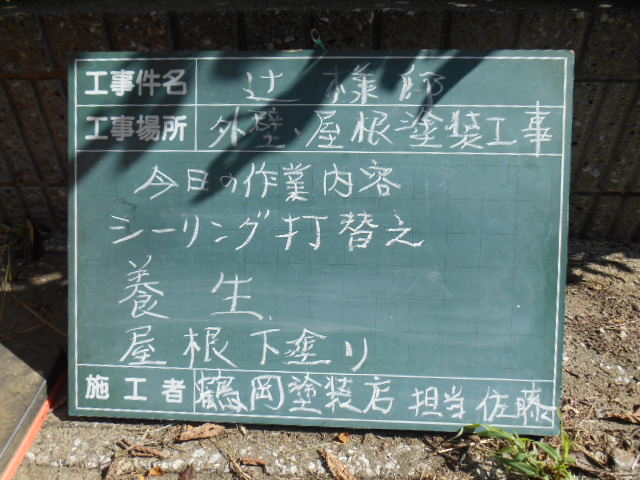 工事件名 辻様邸
工事場所 外壁、屋根塗装工事
今日の作業内容
シーリング打替え
養生
屋根下塗り
施工者 鶴岡塗装店 担当 佐藤